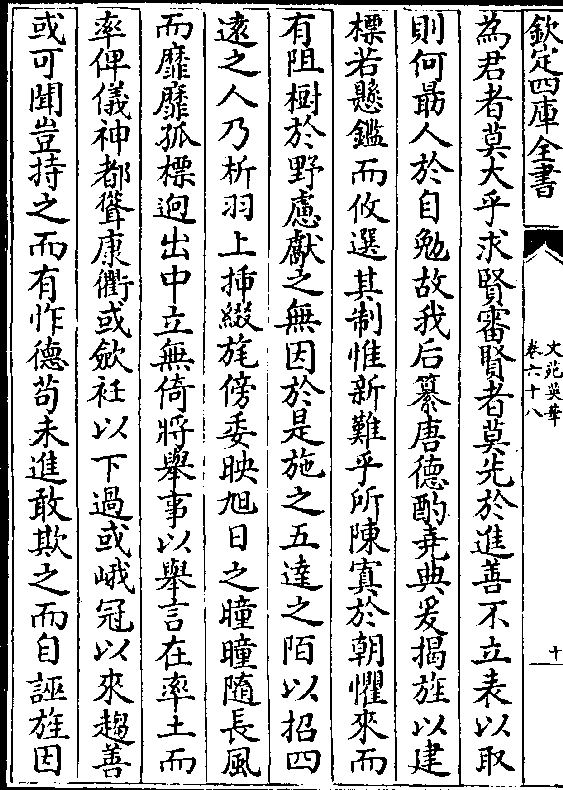 欽定四庫全書
文苑英華
卷六十八
十
為君者莫大乎求賢審賢者莫先於進善不立表以取
則何勗人於自勉故我后纂唐德酌堯典爰揭旌以建
標若懸鑑而攸選其制惟新難乎所陳寘於朝懼來而
有阻樹於野慮獻之無因於是施之五達之陌以招四
遠之人乃析羽上揷綴旄傍委映旭日之曈曈隨長風
而靡靡孤標逈出中立無倚將舉事以舉言在率土而
率俾儀神都聳康衢或歛衽以下過或峨冠以來趨善
或可聞豈持之而有怍德苟未進敢欺之而自誣旌因